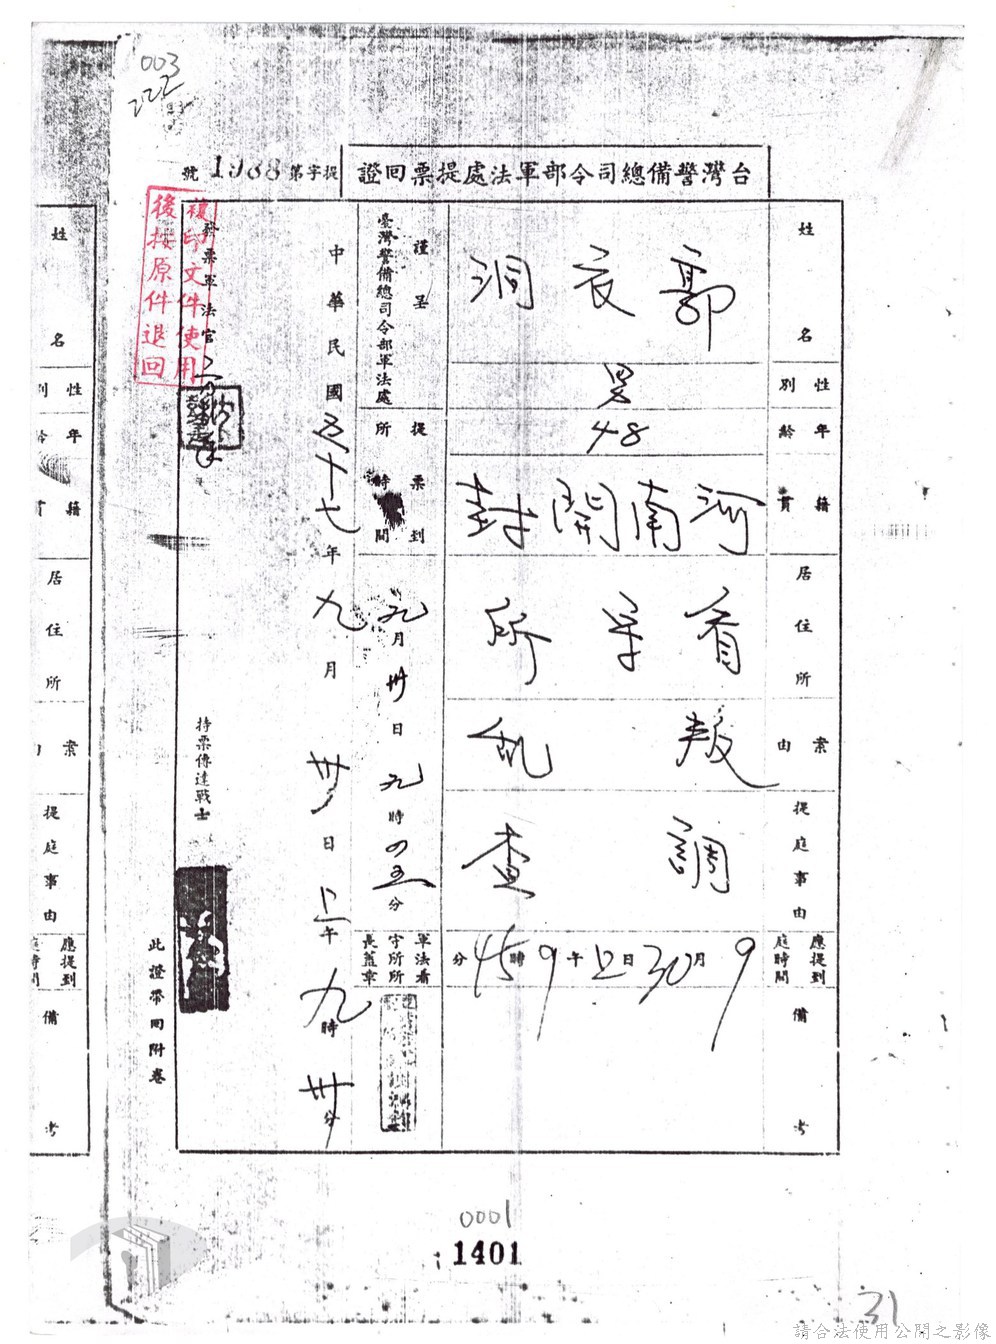 003
222
台灣警備總司令部軍法處提票回證
提字第1968號
姓名 郭衣洞
性別 男
年齡 48
籍貫 河南開封
居住所 看守所
案由 叛乱
提庭事由 調查
應提到庭時間 9月30日上午9時45分
備考
謹呈
臺灣警備總司令部軍法處
提票到所時間 九月卅日九時四五分
軍法看守所所長蓋章
中華民國五十七年九月卅日上午九時卅分
發票軍法官
持票傳達戰士
複印文件使用
後按原件退回
此證帶回附卷
姓名
性別
年齡
籍
居住所
案由
提庭事由
應提到庭時間
備考
0001
1401
31
請合法使用公開之影像